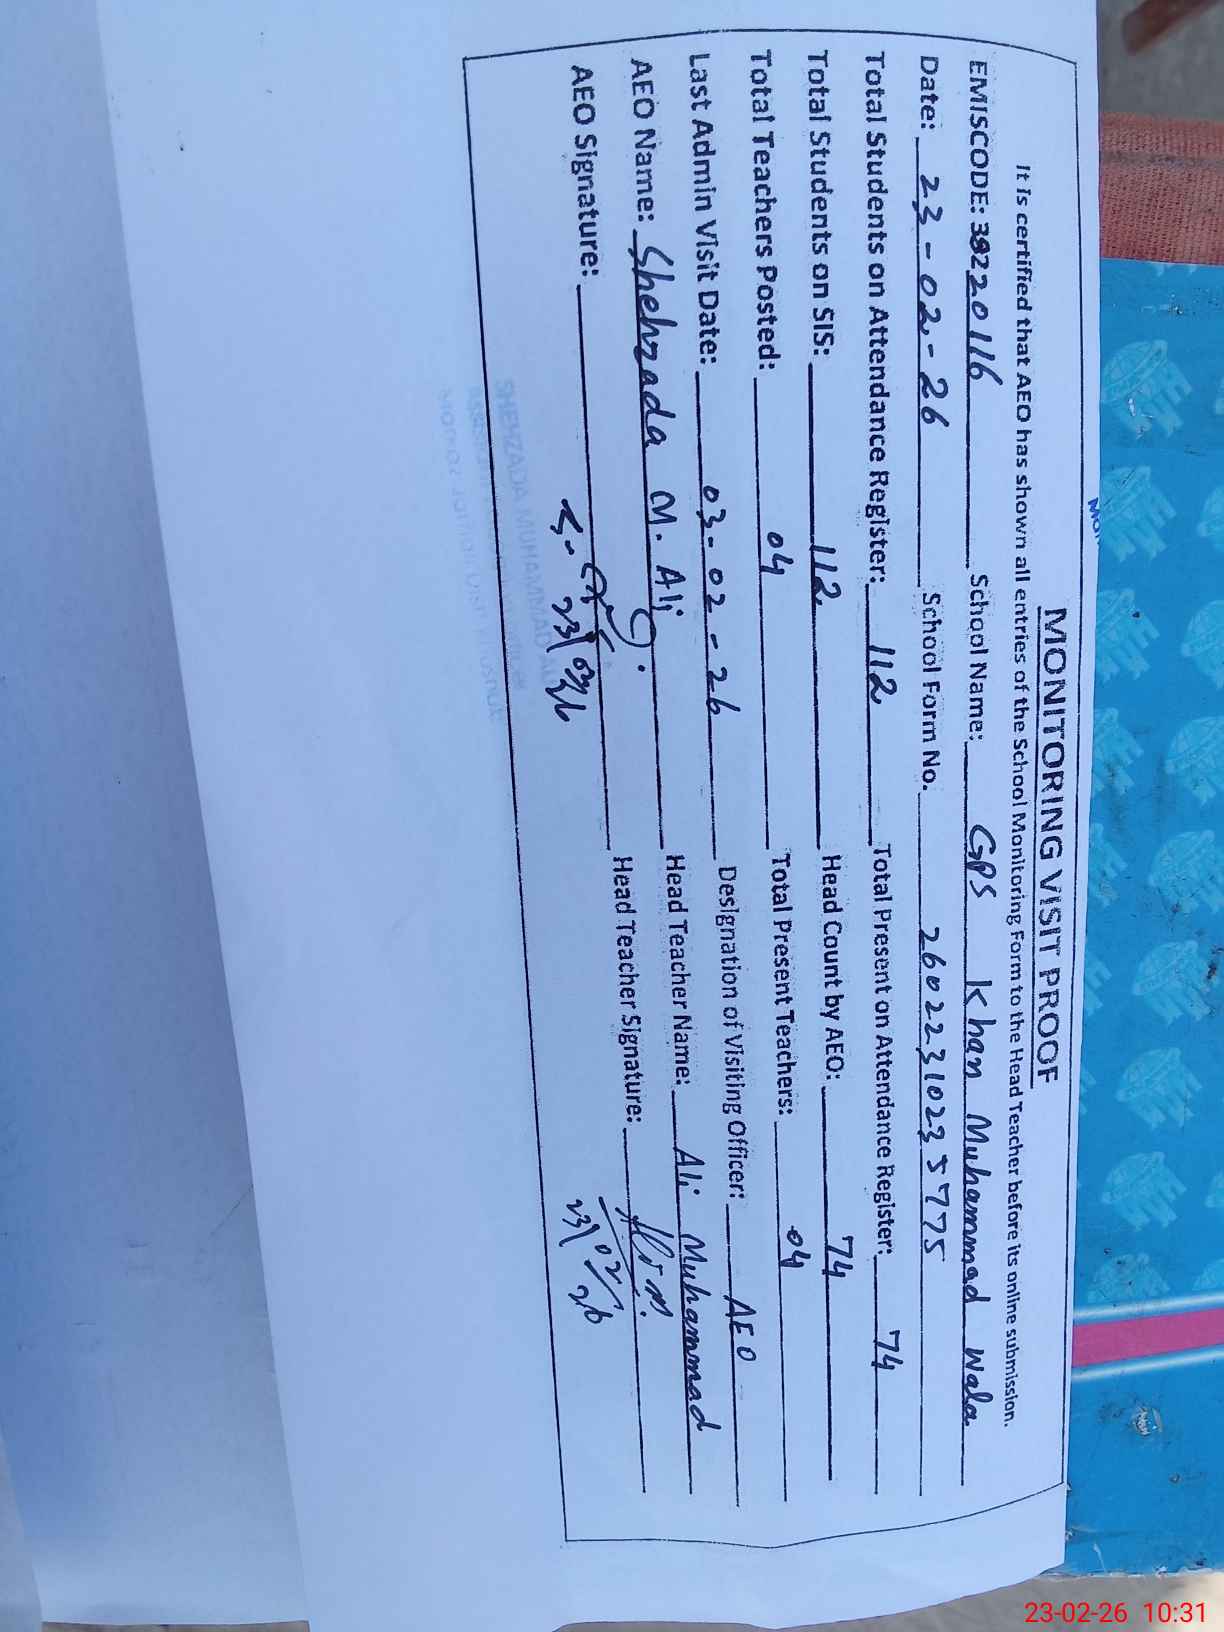 MONITORING VISIT PROOF
It is certified that AEO has shown all entries of the School Monitoring Form to the Head Teacher before its online submission.
EMISCODE: 38220116 School Name: GPS Khan Muhammad Wala
Date: 23-02-26 School Form No. 26022310235775
Total Students on Attendance Register: 112 Total Present on Attendance Register: 74
Total Students on SIS: 112 Head Count by AEO: 74
Total Teachers Posted: 04 Total Present Teachers: 04
Last Admin Visit Date: 03-02-26 Designation of Visiting Officer: AEO
AEO Name: Shehzada M. Ali Head Teacher Name: Ali Muhammad
AEO Signature: Head Teacher Signature:
23/02/26 23/02/26
SHEHZADA MUHAMMAD ALI
23-02-26 10:31